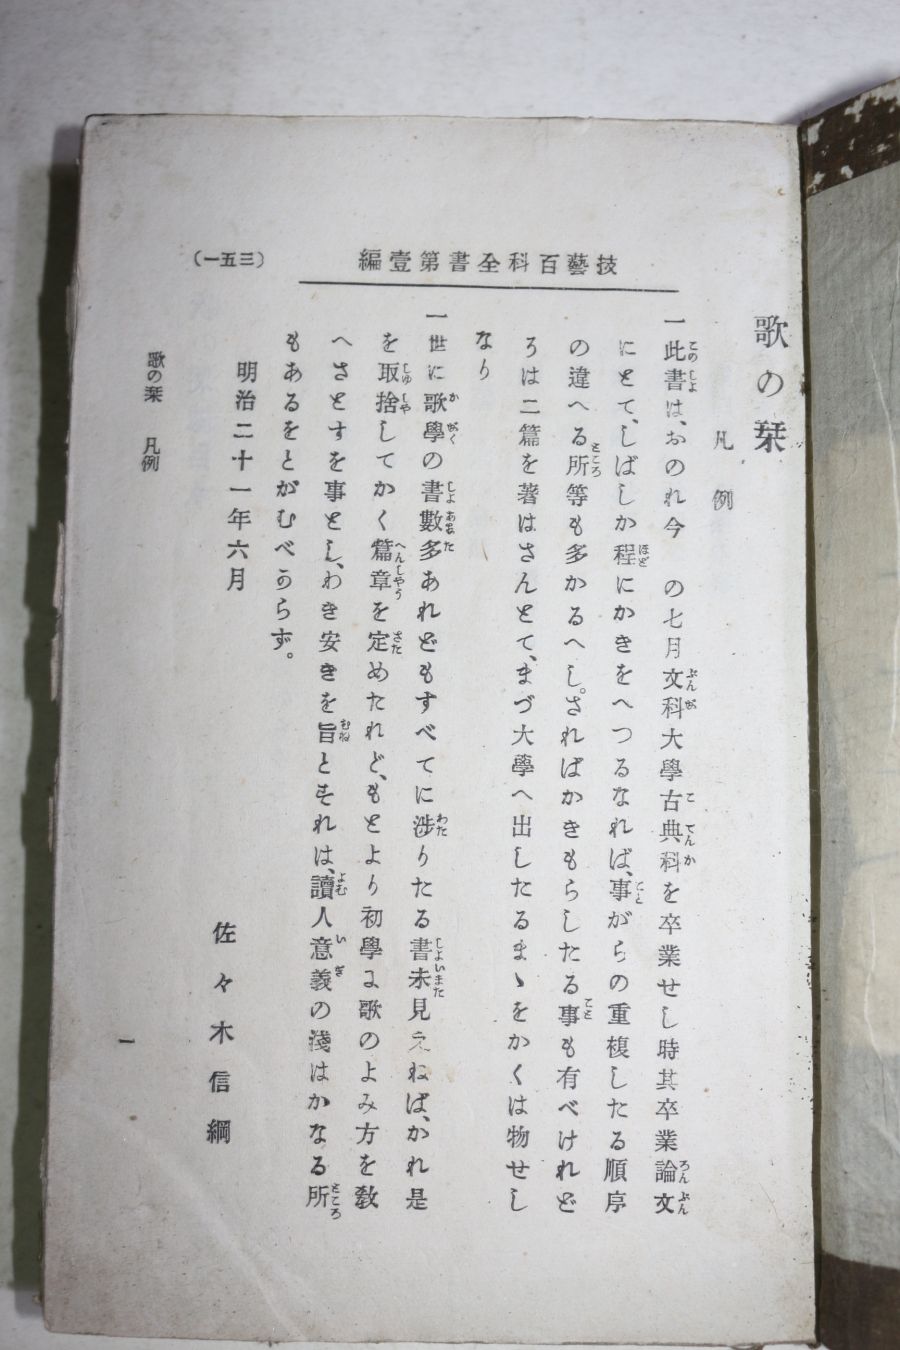 技藝百科全書第壹編
(三五一)
歌の栞
凡例
一此書は、おのれ今 の七月文科大學古典科を卒業せし時其卒業論文
にとて、しばしか程にかきをへつるなれば、事がらの重複したる順序
の違へる所等も多かるへし。さればかきもらしたる事も有べけれど
ろは二篇を著はさんとて、まづ大學へ出したるまゝをかくは物せし
なり
一世に歌學の書數多あれどもすべてに渉りたる書未見えねば、かれ是
を取捨してかく篇章を定めたれど、もとより初學に歌のよみ方を敎
へさとすを事とし、わき安きを旨とすれは、讀人意義の淺はかなる所
もあるをとがむべからず。
明治二十一年六月
佐々木信綱
歌の栞 凡例
一